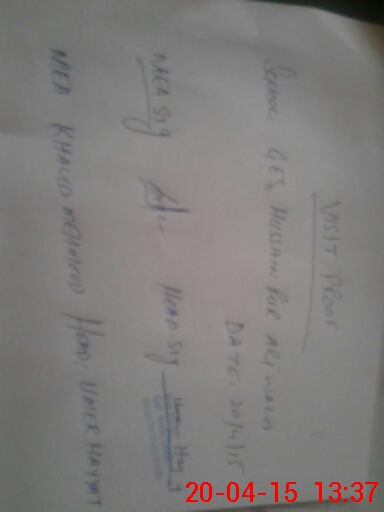 VISIT PROOF
School GES HUSSAIN PUR ARIWALA
DATE. 20/4/15
MEA Sig Head Sig
MEA KHALID MEHMOOD Head. UMER HAYYAT
20-04-15 13:37